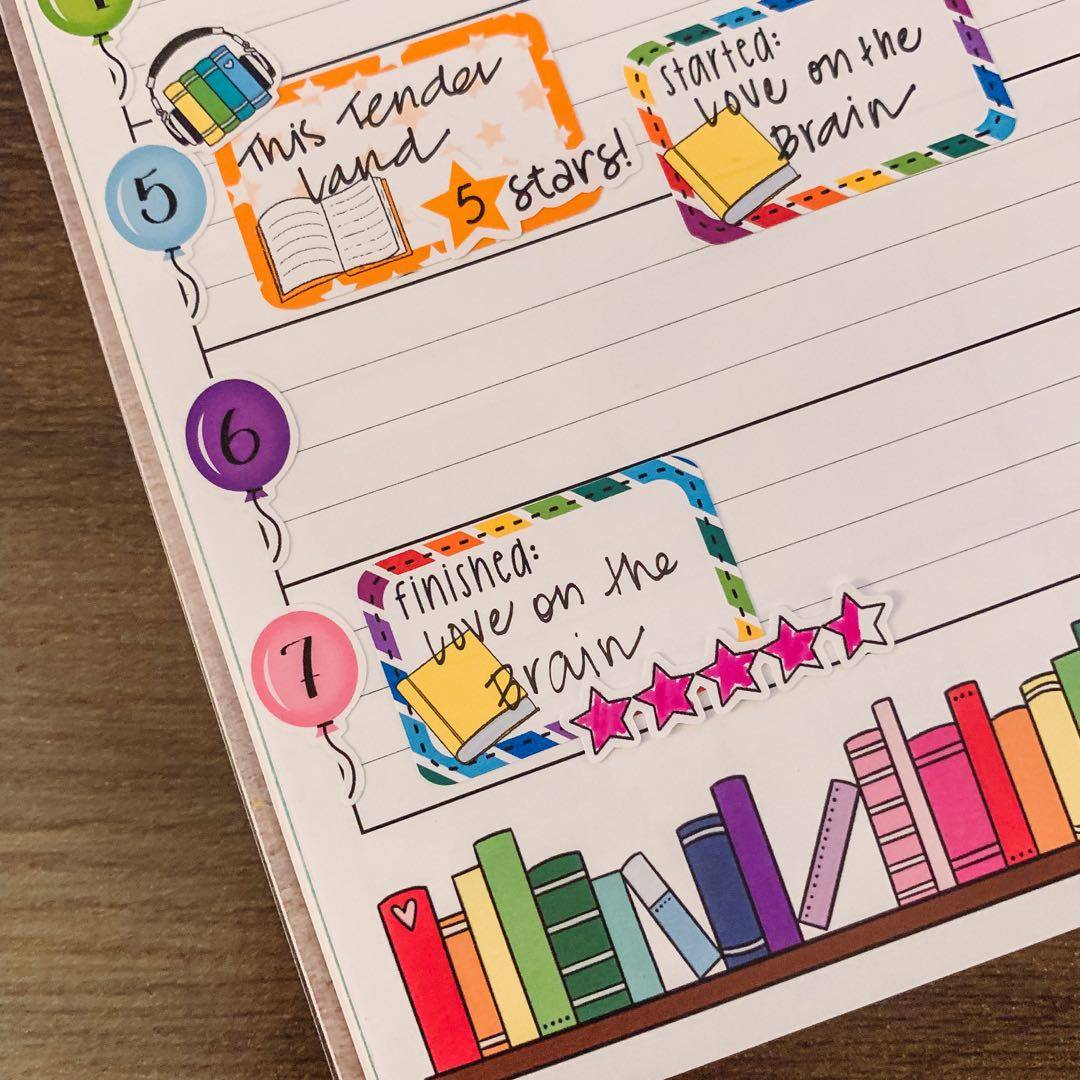 5
This Tender
Land
5 stars!
started:
Love on the
Brain
6
7
finished:
Love on the
Brain